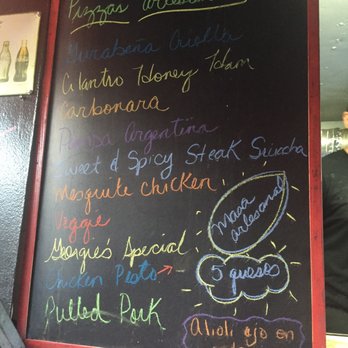 Pizzas Artesanales
Gurabeña Criolla
Cilantro Honey Ham
Carbonara
Pampa Argentina
Sweet & Spicy Steak Sriracha
Mesquite Chicken
Veggie
Georgie's Special
Chicken Pesto →
Pulled Pork
Masa
artesanal
5 quesos
Alioli ajo en